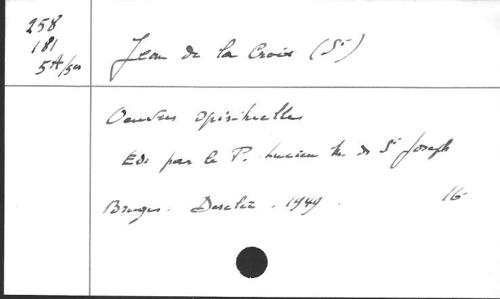 258
181
5A/50
Jean de la Croix (St)
Oeuvres spirituelles
Ed. par le P. Lucien M. de St Joseph
Bruges. Desclée. 1949. 16